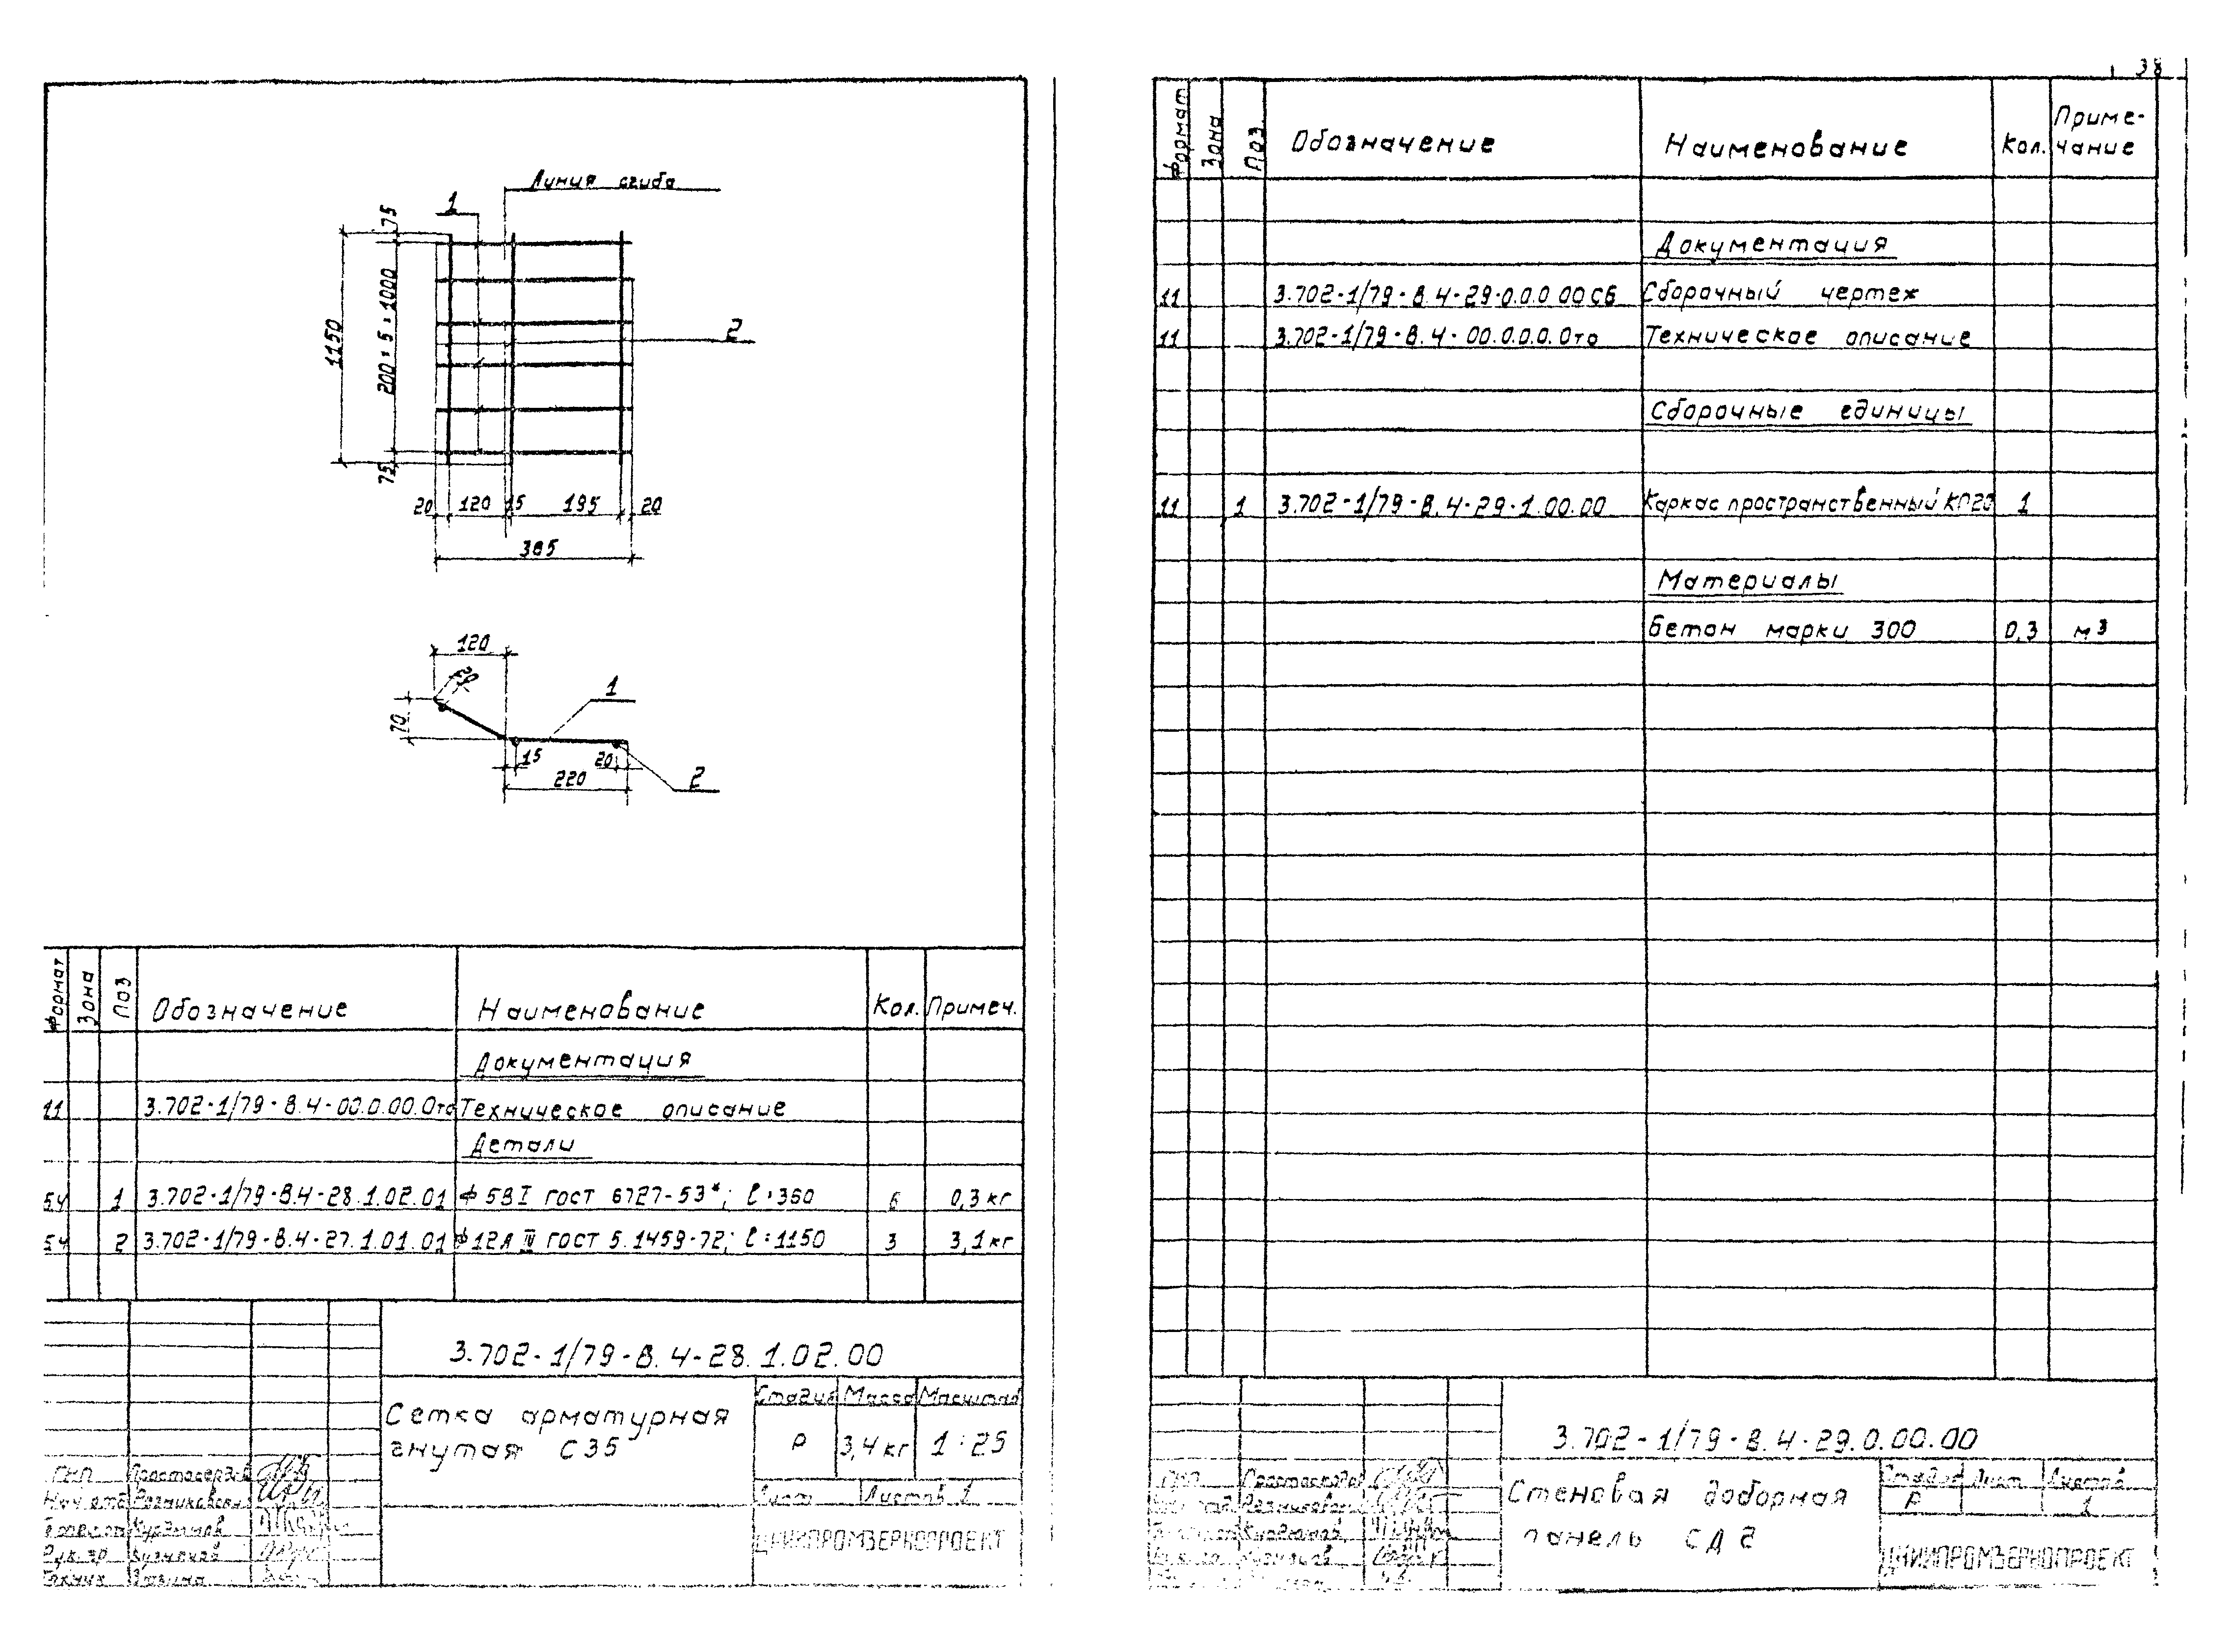 Линия сгиба
1
75
1150
200×5=1000
2
75
20 120 15 195 20
385
120
20
1
70
15
20
220
2
Формат Зона Поз Обозначение Наименование Кол. Примеч.
Документация
11 3.702-1/79-В.4-00.0.00.0то Техническое описание
Детали
Б4 1 3.702-1/79-В.4-28.1.02.01 ф 5ВI ГОСТ 6727-53*; ℓ=360 6 0,3 кг
Б4 2 3.702-1/79-В.4-27.1.01.01 ф12А IV ГОСТ 5.1459-72; ℓ=1150 3 3,1кг
3.702-1/79-В.4-28.1.02.00
Сетка арматурная
гнутая С35
Стадия Масса Масштаб
Р 3,4кг 1:25
Лист Листов 1
ЦНИИПРОМЗЕРНОПРОЕКТ
ГИП
Нач.отд
Кузнецов
Техник
38
Формат Зона Поз. Обозначение Наименование Кол. Приме-
чание
Документация
11 3.702-1/79-В.4-29.0.0.0 00СБ Сборочный чертеж
11 3.702-1/79-В.4-00.0.0.0.0то Техническое описание
Сборочные единицы
11 1 3.702-1/79-В.4-29.1.00.00 Каркас пространственный КП20 1
Материалы
Бетон марки 300 0,3 м3
3.702-1/79-В.4-29.0.00.00
Стеновая доборная
панель СД2
Стадия Лист Листов
Р 1
ЦНИИПРОМЗЕРНОПРОЕКТ
ГИП